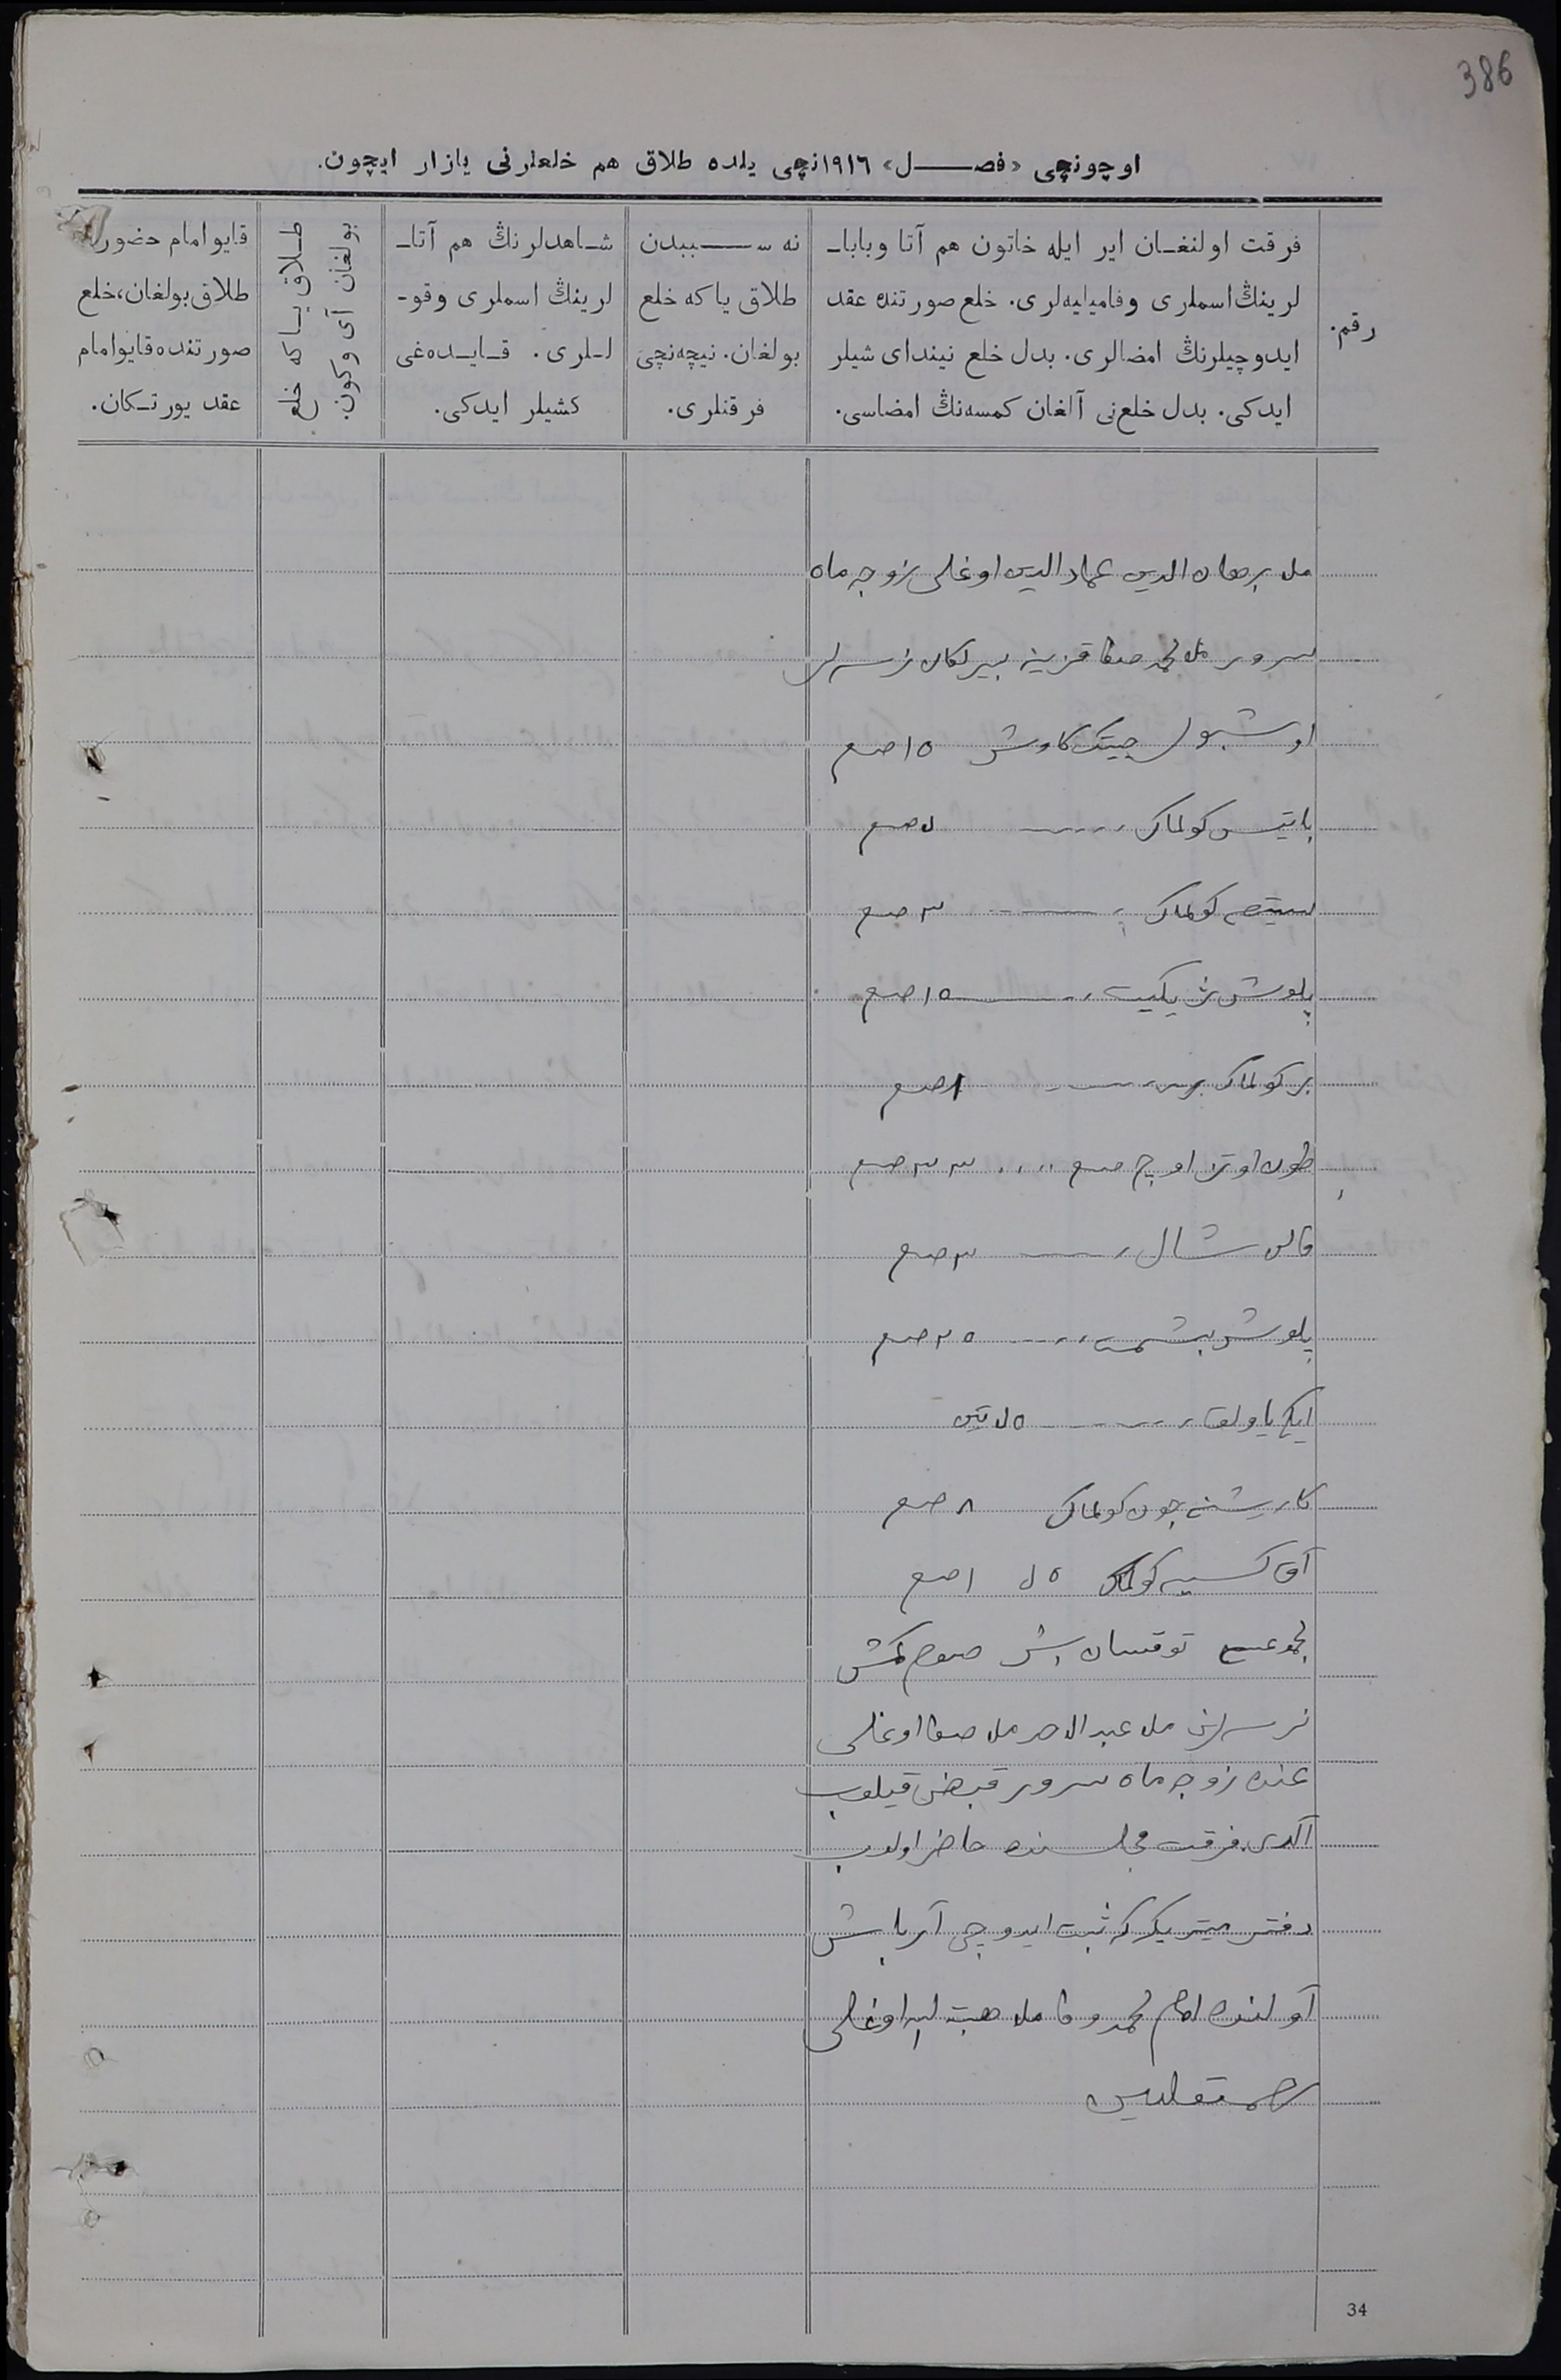 386
اوچونچی «فصل» ١٩١٦نچی یلده طلاق هم خلعلرنی یازار ایچون.
رقم.
فرقت اولنغان ایر ایله خاتون هم آتا وبابا-
لرینڭ اسملری وفامیلیه‌لری. خلع صورتنده عقد
ایدوچیلرنڭ امضالری. بدل خلع نیندای شیلر
ایدکی. بدل خلع‌نی آلغان کمسه‌نڭ امضاسی.
نه سببدن
طلاق یاکه خلع
بولغان. نیچه‌نچی
فرقتلری.
شاهدلرنڭ هم آتا-
لرینڭ اسملری وقو-
للری. قایده‌غی
کشیلر ایدکی.
طلاق یاکه خلع
بولغان آی وکون.
قایو امام حضور
طلاق بولغان، خلع
صورتنده قایو امام
عقد یورتکان.
ملا برهان الدین عماد الدین اوغلی زوجه ماه
سرور ملا محمد صفا قزینه بیرلکان نرسه‌لر
اوشبولر چیتک کاوش ١٥ صوم
باتیس کولماک ٥ صوم
سیتسه کولماک ٣ صوم
پلوش ژیکیت ١٥ صوم
بر کولماک ٨ صوم
طون اوتز اوچ صوم ٣٣ صوم
قالن شال ٣ صوم
پلوش بشمت ٢٥ صوم
ایکی یاولق ٥٠ تین
کولماک ٨ صوم
آق کولماک ٥٠ ١ صوم
مجموعسی توقسان بش صوم کمش
نرسه‌لرنی ملا عبد الاحد ملا صفا اوغلی
عنده زوجه ماه سرور قبض قیلوب
آلدی. فرقت مجلسنده حاضر اولوب
دفتر میتریکه‌که ثبت ایدوچی آرباش
آولنده امام محمد وفا ملا هبت الله اوغلی
34